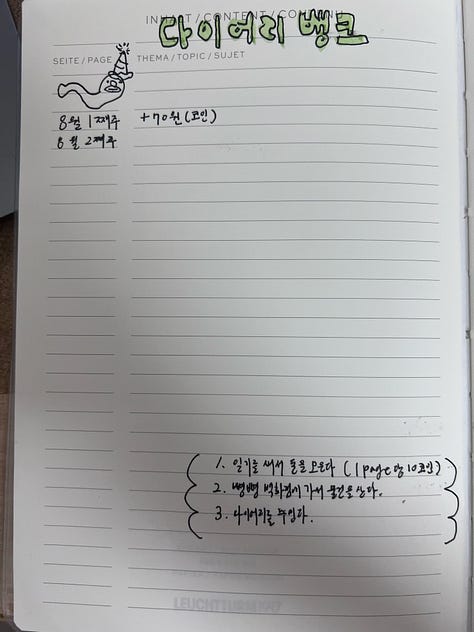 INHALT / CONTENT / CONTENU
다이어리 뱅크
SEITE / PAGE
THEMA / TOPIC / SUJET
8월 1째주 +70원 (코인)
8월 2째주
1. 일기를 써서 돈을 모은다 (1page당 10코인)
2. 뱅뱅 백화점에 가서 물건을 산다.
3. 다이어리를 꾸민다.
LEUCHTTURM1917